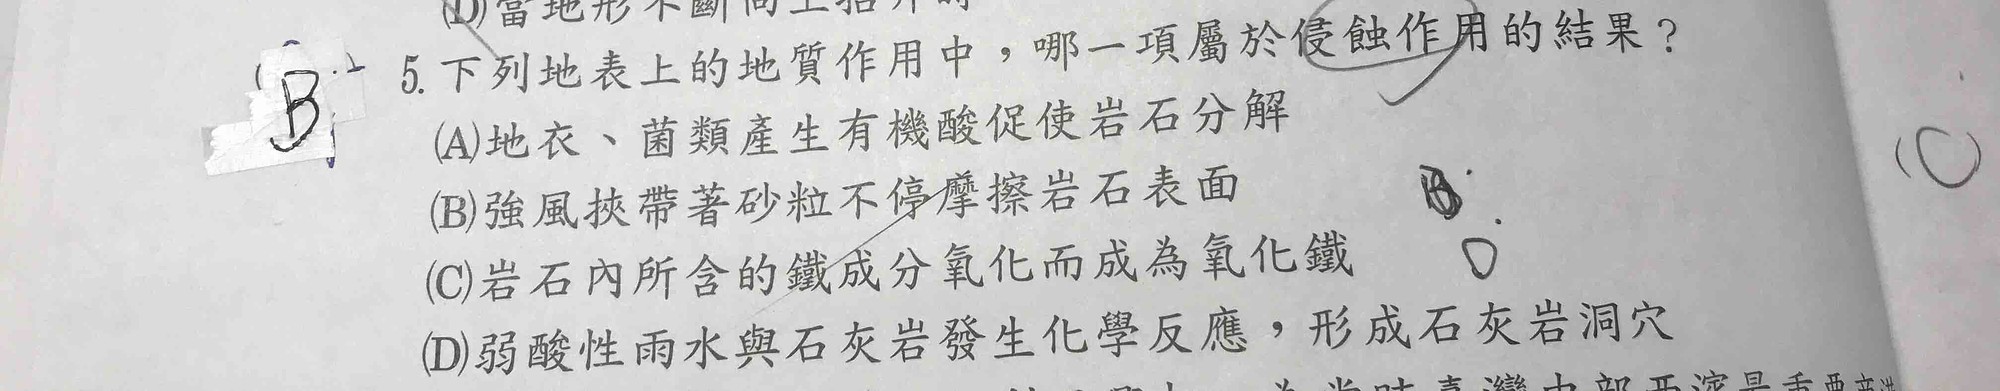 (D)當地形不斷向上抬升時
B
5.下列地表上的地質作用中，哪一項屬於侵蝕作用的結果？
(A)地衣、菌類產生有機酸促使岩石分解
(B)強風挾帶著砂粒不停摩擦岩石表面
B.
(C)
(C)岩石內所含的鐵成分氧化而成為氧化鐵
D
(D)弱酸性雨水與石灰岩發生化學反應，形成石灰岩洞穴